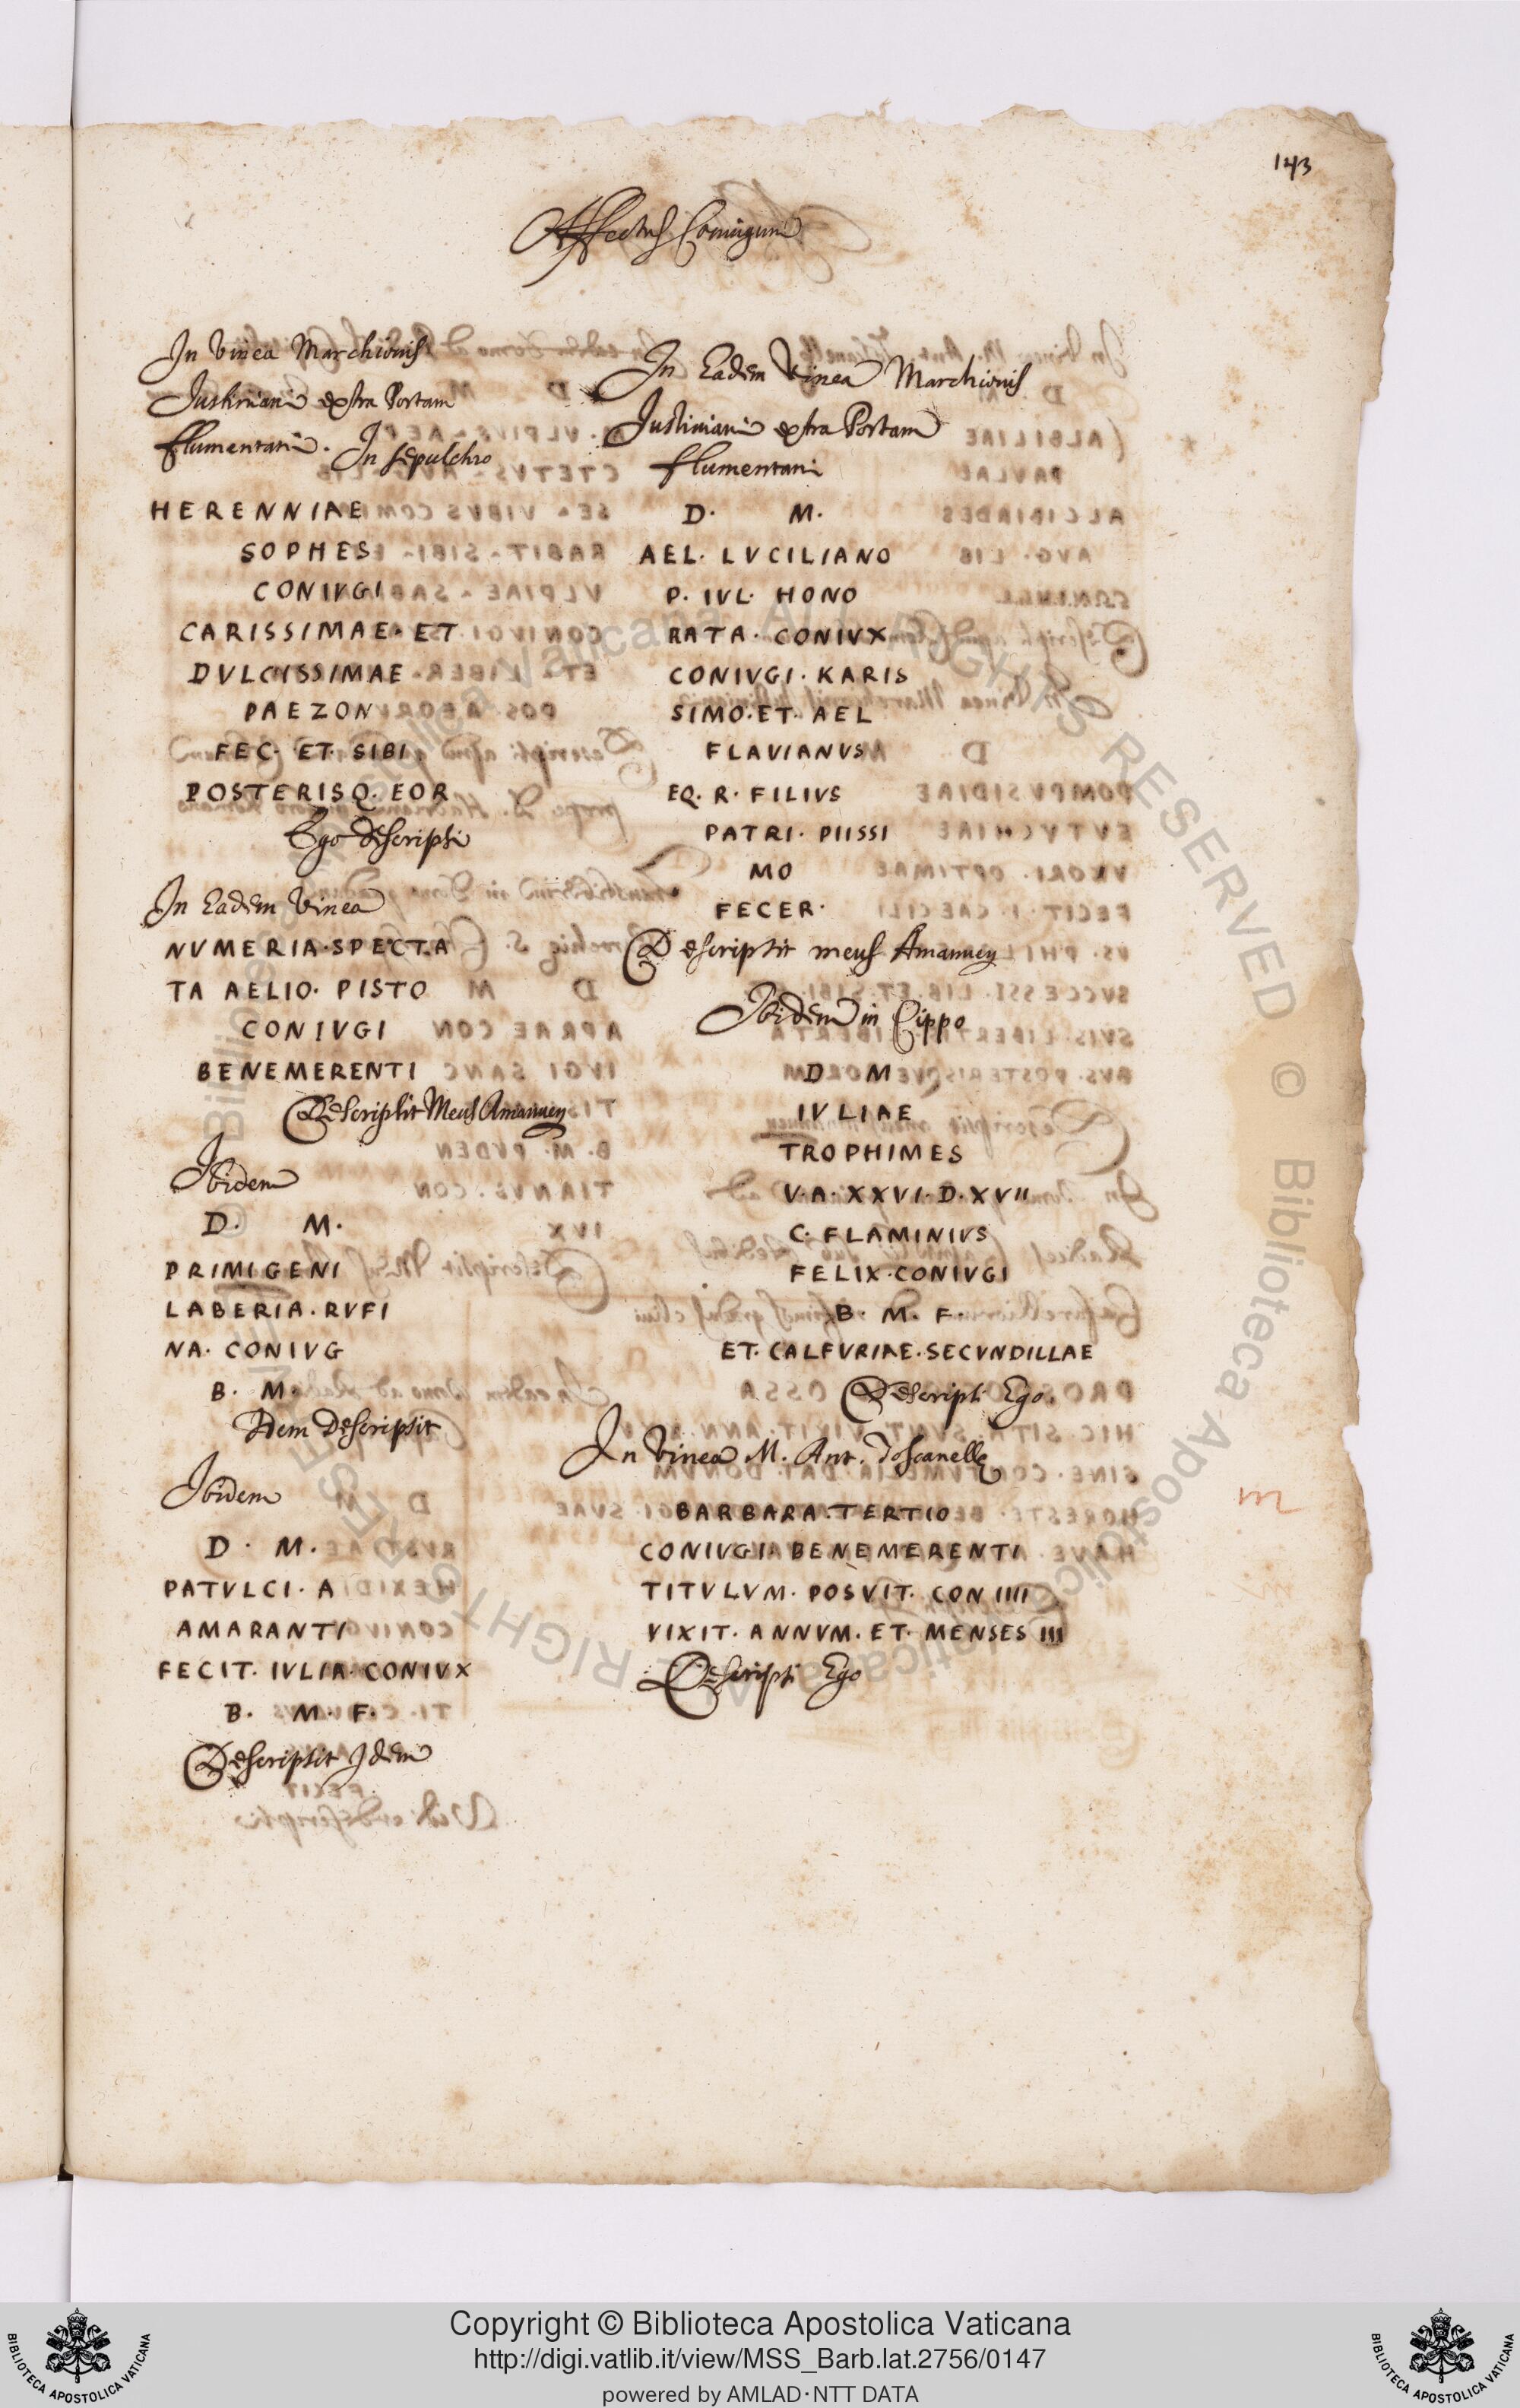 143
Affectus Coniugum
In Vinea Marchionis
Justiniani extra Portam
flumentana. In sepulchro
HERENNIAE
SOPHES
CONIVGI
CARISSIMAE. ET
DVLCISSIMAE
PAEZON
FEC. ET. SIBI
POSTERISQ. EOR
Ego descripsi
In Eadem Vinea
NVMERIA. SPECTA
TA AELIO. PISTO
CONIVGI
BENEMERENTI
Descripsit Meus Amanuen
Ibidem
D. M.
PRIMIGENI
LABERIA. RVFI
NA. CONIVG
B. M.
Idem Descripsit
Ibidem
D. M.
PATVLCI. A
AMARANTI
FECIT. IVLIA. CONIVX
B. M. F.
Descripsit Idem
In Eadem Vinea Marchionis
Justiniani extra Portam
flumentana
D. M.
AEL. LVCILIANO
P. IVL. HONO
RATA. CONIVX
CONIVGI. KARIS
SIMO. ET. AEL
FLAVIANVS
EQ. R. FILIVS
PATRI. PIISSI
MO
FECER.
Descripsit meus Amanuen
Ibidem in Cippo
D M
IVLIAE
TROPHIMES
V. A. XXVI. D. XVII
C. FLAMINIVS
FELIX. CONIVGI
B. M. F.
ET. CALFVRIAE. SECVNDILLAE
Descripsi Ego.
In Vinea M. Ant. Toscanelle
BARBARA. TERTIO
CONIVGI BENEMERENTI
TITVLVM. POSVIT. CON IIII
VIXIT. ANNVM. ET. MENSES III
Descripsi Ego
Copyright © Biblioteca Apostolica Vaticana
http://digi.vatlib.it/view/MSS_Barb.lat.2756/0147
powered by AMLAD·NTT DATA
BIBLIOTECA APOSTOLICA VATICANA
BIBLIOTECA APOSTOLICA VATICANA